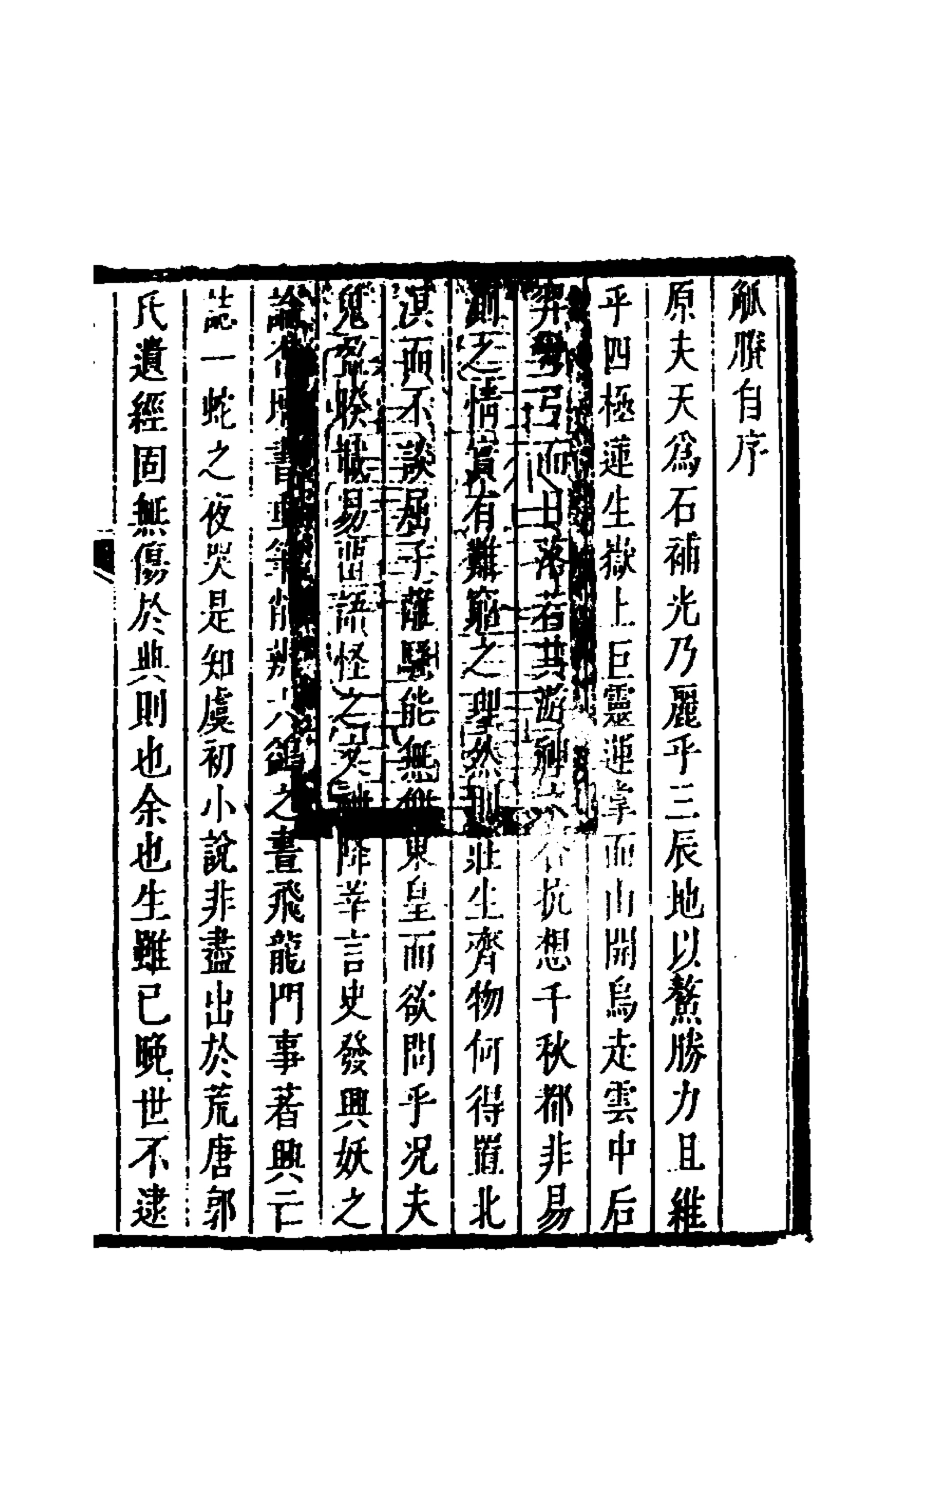 觚賸自序
原夫天為石補光乃麗乎三辰地以鰲勝力且維
乎四極蓮生嶽上巨靈運掌而山開烏走雲中后
羿彎弓而日落若其游神六合抗想千秋都非易
測之情實有難窮之理然則莊生齊物何得置北
溟而不談屈子離騷能無繼東皇而欲問乎況夫
鬼盈睽載易垂語怪之文神降莘言史發興妖之
論石憑書車筆削辨六鷁之書飛龍門事著興亡
誌一蛇之夜哭是知虞初小說非盡出於荒唐郭
氏遺經固無傷於典則也余也生雖已晚世不逮